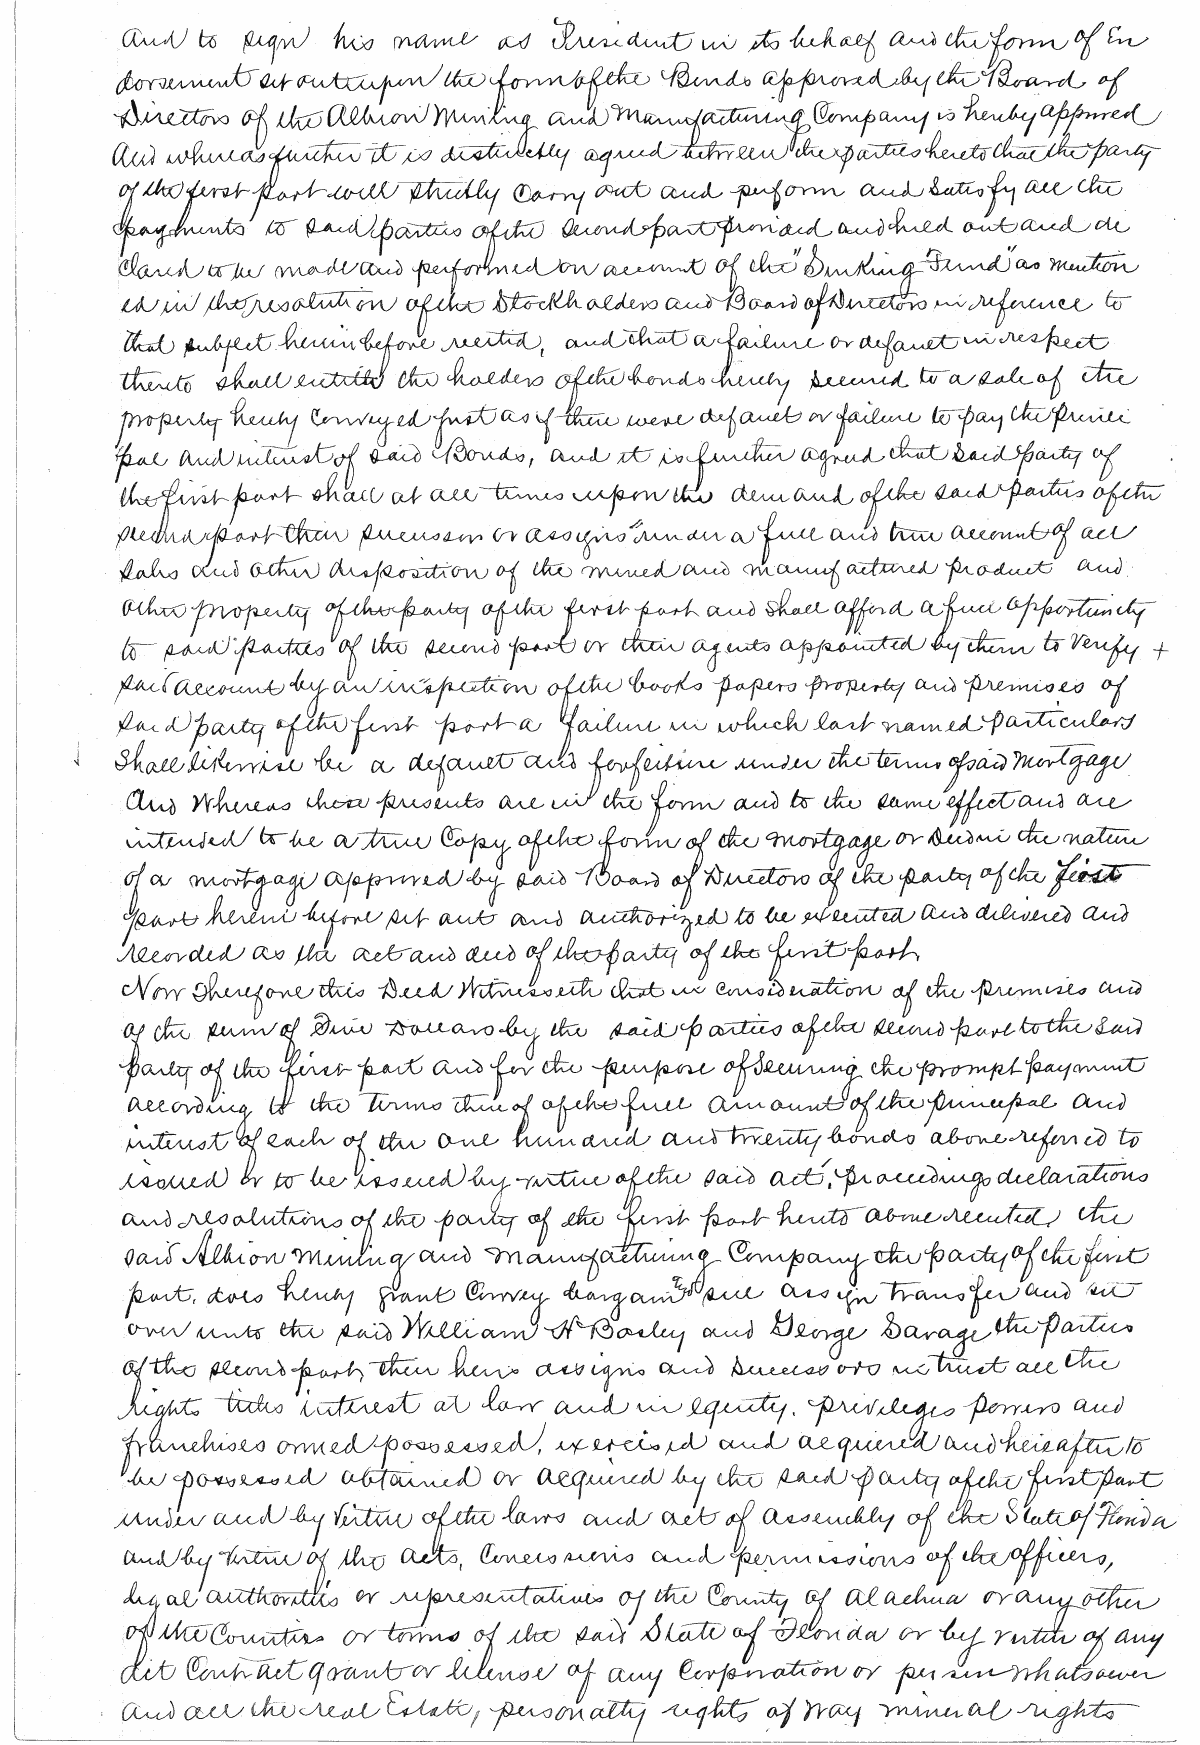 and to sign his name as President in its behalf and the form of En
dorsement set out upon the form of the Bonds approved by the Board of
Directors of the Albion Mining and Manufacturing Company is hereby approved
And whereas further it is distinctly agreed between the parties hereto that the party
of the first part will strictly carry out and perform and satisfy all the
payments to said parties of the second part provided and held out and de
clared to be made and performed on account of the "Sinking Fund" as mention
ed in the resolution of the Stockholders and Board of Directors in reference to
that subject herein before recited, and that a failure or default in respect
thereto shall entitle the holders of the bonds hereby secured to a sale of the
property hereby conveyed just as if there were default or failure to pay the princi
pal and interest of said Bonds, and it is further agreed that said party of
the first part shall at all times upon the demand of the said parties of the
second part their successors or assigns render a full and true account of all
sales and other disposition of the mined and manufactured product and
other property of the party of the first part and shall afford a full opportunity
to said parties of the second part or their agents appointed by them to verify +
said account by an inspection of the books papers property and premises of
said party of the first part a failure in which last named particulars
shall likewise be a default and forfeiture under the terms of said mortgage
And Whereas these presents are in the form and to the same effect and are
intended to be a true copy of the form of the mortgage or Deed in the nature
of a mortgage approved by said Board of Directors of the party of the first
part herein before set out and authorized to be executed and delivered and
recorded as the act and deed of the party of the first part
Now Therefore this Deed Witnesseth that in consideration of the premises and
of the sum of Five Dollars by the said parties of the second part to the said
party of the first part and for the purpose of securing the prompt payment
according to the terms thereof of the full amount of the principal and
interest of each of the one hundred and twenty bonds above referred to
issued or to be issued by virtue of the said act, proceedings declarations
and resolutions of the party of the first part hereto above recited, the
said Albion Mining and Manufacturing Company the party of the first
part, does hereby grant convey bargain and sell assign transfer and set
over unto the said William H Bosley and George Savage the parties
of the second part, their heirs assigns and successors in trust all the
rights titles interest at law and in equity, privileges powers and
franchises owned possessed, exercised and acquired and hereafter to
be possessed obtained or acquired by the said party of the first part
under and by virtue of the laws and act of assembly of the State of Florida
and by virtue of the acts, concessions and permissions of the officers,
legal authorities or representatives of the County of Alachua or any other
of the Counties or towns of the said State of Florida or by virtue of any
contract grant or license of any corporation or person whatsoever
and all the real Estate, personalty rights of way mineral rights